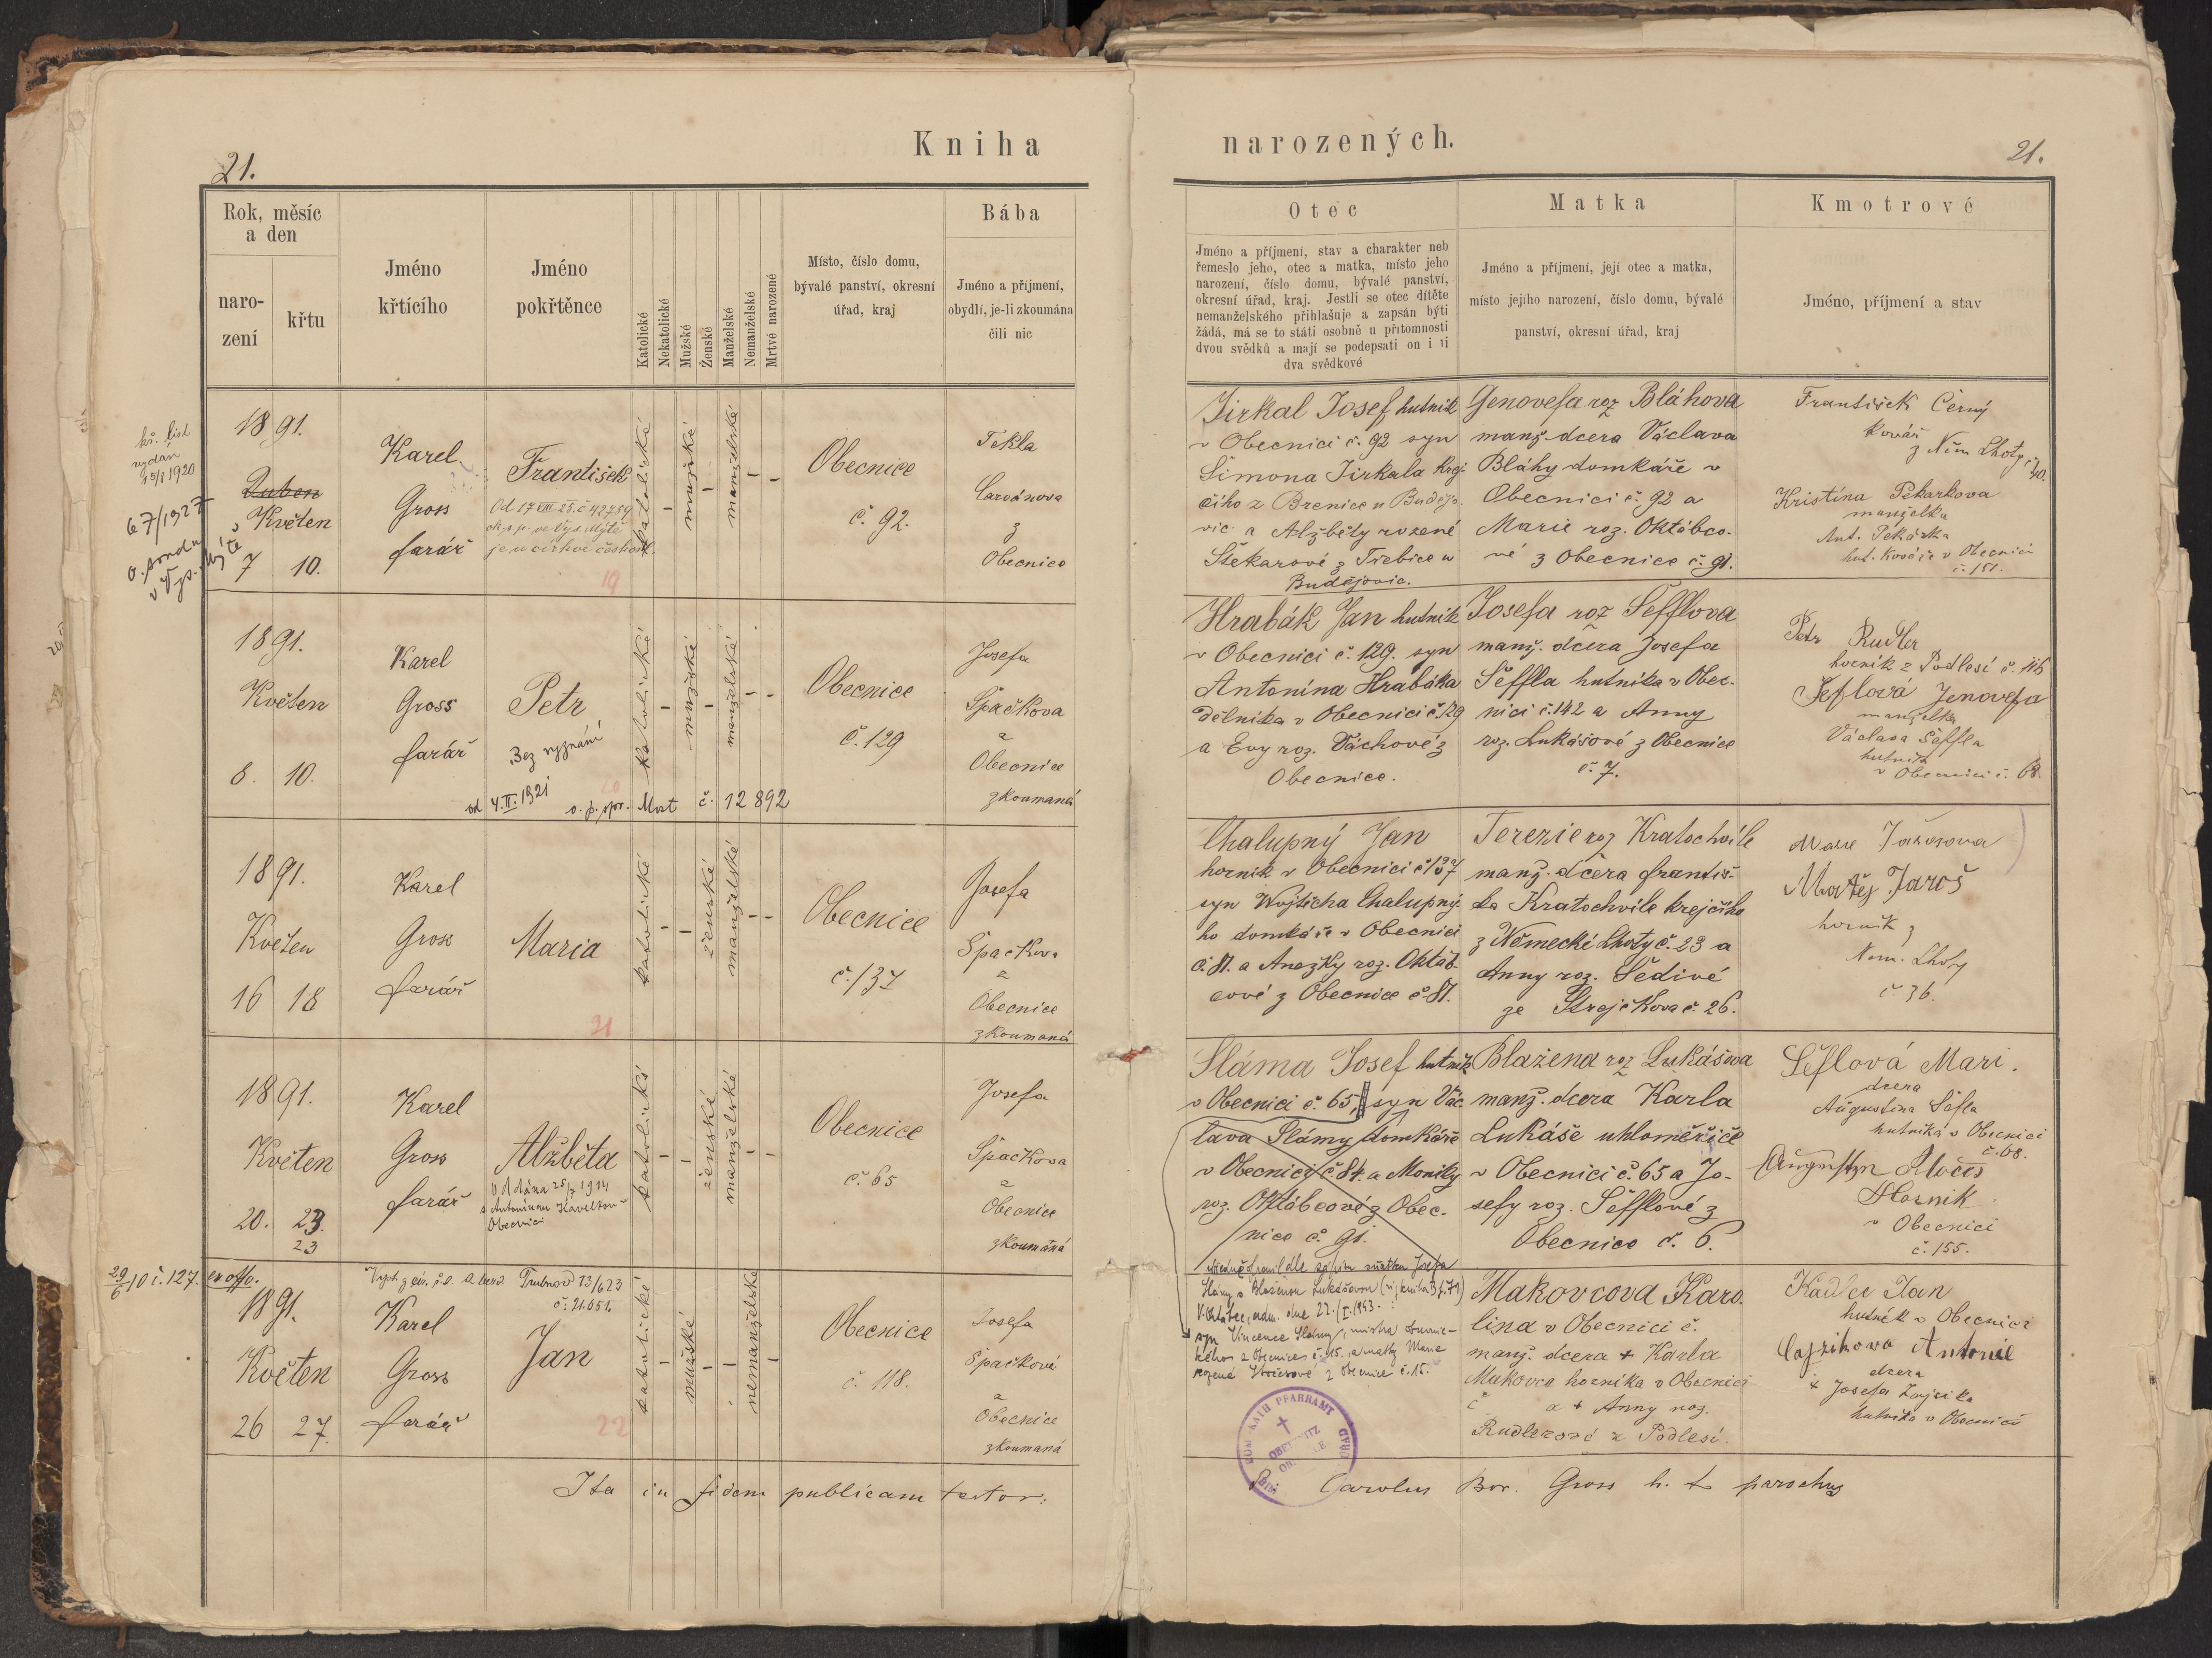 Kniha
narozených.
21.
21.
Rok, měsíc
a den
naro-
zení
křtu
Jméno
křtícího
Jméno
pokřtěnce
Katolické
Nekatolické
Mužské
Ženské
Manželské
Nemanželské
Mrtvé narozené
Místo, číslo domu,
bývalé panství, okresní
úřad, kraj
Bába
Jméno a příjmení,
obydlí, je-li zkoumána
čili nic
Otec
Jméno a příjmení, stav a charakter neb
řemeslo jeho, otec a matka, místo jeho
narození, číslo domu, bývalé panství,
okresní úřad, kraj. Jestli se otec dítěte
nemanželského přihlašuje a zapsán býti
žádá, má se to státi osobně u přítomnosti
dvou svědků a mají se podepsati on i ti
dva svědkové
Matka
Jméno a příjmení, její otec a matka,
místo jejího narození, číslo domu, bývalé
panství, okresní úřad, kraj
Kmotrové
Jméno, příjmení a stav
kř. list
vydán
15/8 1920
67/1927
o. soudu
v Vys. Mýtě
1891.
Duben
Květen
7 10.
Karel
Gross
farář
František
Od 17 VIII. 25. č 42759
ok. s. p. ve Vys. Mýtě
je u církve českosl.
19
katolické
mužské
manželské
Obecnice
č. 92.
Tekla
z
Obecnice
Jirkal Josef hutník
v Obecnici č. 92 syn
Šimona Jirkala krej-
čího z Brenice u Budějo-
vic a Alžběty rozené
Štekarové z Třebice u
Budějovic.
Genovefa roz Bláhova
manž. dcera Václava
Bláhy domkáře v
Obecnici č. 92 a
Marie roz. Októbco-
vé z Obecnice č. 91.
František Černý
kovář
z Něm Lhoty č. 40.
Kristina Pekarkova
manželka
Ant. Pekárka
hut. kováře v Obecnici
č. 151.
1891.
Květen
8. 10.
Karel
Gross
farář
Petr
Bez vyznání
od 4. II. 1921 o. p. spr. Most č. 12892
20
katolické
mužské
manželské
Obecnice
č. 129
Josefa
Špačkova
z
Obecnice
zkoumaná
Hrabák Jan hutník
v Obecnici č. 129. syn
Antonína Hrabáka
dělníka v Obecnici č. 129
a Evy roz. Váchové z
Obecnice.
Josefa roz Šefflova
manž. dcera Josefa
Šeffla hutníka v Obec-
nici č. 142 a Anny
roz. Lukášové z Obecnice
č. 7.
Petr Rudler
horník z Podlesí č. 116
Šeflová Jenovefa
manželka
Václava Šeffla
hutník
v Obecnici č. 68.
1891.
Květen
16 18
Karel
Gross
farář
Maria
21
katolické
ženské
manželské
Obecnice
č. 137
Josefa
Špačkova
z
Obecnice
zkoumaná
Chalupný Jan
horník v Obecnici č 137
syn Vojtěcha Chalupný-
ho domkáře v Obecnici
č. 81. a Anežky roz. Októb-
cové z Obecnice č 81.
Terezie roz Kratochvíle
manž. dcera Františ-
ka Kratochvíle krejčího
z Německé Lhoty č. 23 a
Anny roz. Šedivé
ze Strejčkova č. 26.
Marie Jarosova
Matěj Jaroš
horník z
Nem. Lhoty
č. 36.
1891.
Květen
20. 23.
23
Karel
Gross
farář
Alžběta
Oddána 25/7 1914
s Antonínem
Obecnici
katolické
ženské
manželské
Obecnice
č. 65
Josefa
Špačkova
z
Obecnice
zkoumaná
Sláma Josef hutník
v Obecnici č. 65, syn Vác-
lava Slámy domkáře
v Obecnici č 84. a Moniky
roz. Októbcové z Obec-
nice č. 91.
Slámy s Blaženou Lukášovou
syn Vincence Slámy, mistra
z Obecnice č. 15. a matky Marie
rozené z Obecnice č. 15.
Blažena roz Lukášova
manž. dcera Karla
Lukáše uhloměřiče
v Obecnici č. 65 a Jo-
sefy roz. Šefflové z
Obecnice č. 6.
Šeflová Mari.
dcera
Augustina Šefla
hutníka v Obecnici
č. 68.
Horník
v Obecnici
č. 155.
29/6 10 č. 127. ex offo.
č. 21.051.
1891.
Květen
26 27.
Karel
Gross
farář
Jan
22
katolické
mužské
nemanželské
Obecnice
č. 118.
Josefa
Špačková
z
Obecnice
zkoumaná
Makovcova Karo-
lina v Obecnici č.
manž. dcera + Karla
Makovca horníka v Obecnici
č a + Anny roz.
Rudlerové z Podlesí.
Kadlec Jan
hutník v Obecnici
Antonie
dcera
+ Josefa
hutníka v Obecnici
Ita in fidem publicam testor:
Carolus Bor. Gross h. t. parochus
KATH PFARRAMT